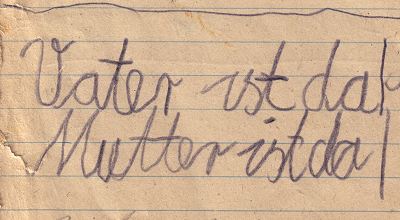 Vater ist da!
Mutter ist da!